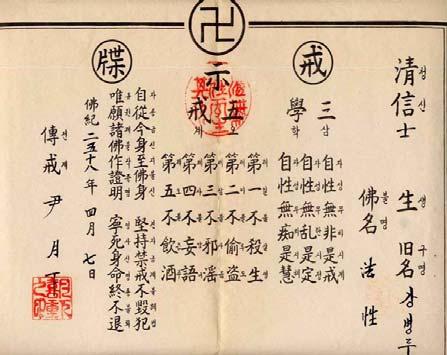 卍
戒示牒
清信士 生 旧名 강병두
佛名 法性
三學
自性無非是戒
自性無乱是定
自性無痴是慧
五戒
第一不殺生
第二不偷盗
第三不邪淫
第四不妄語
第五不飲酒
自從今身至佛身 堅持禁戒不毀犯
唯願諸佛作證明 寧死身命終不退
佛紀二五一八年 四月七日
傳戒 尹月下